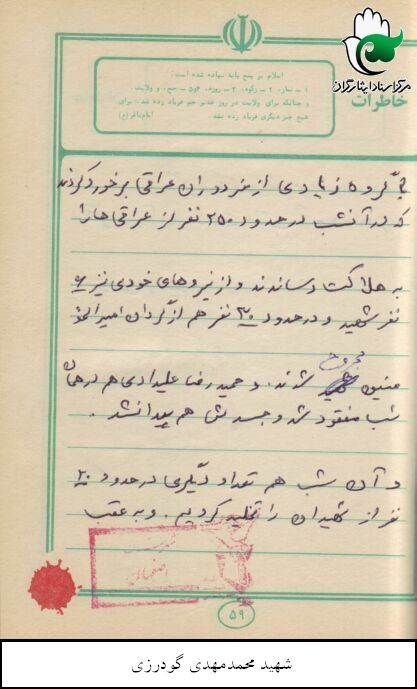 مرکز اسناد ایثارگران
خاطرات
اسلام بر پنج پایه نهاده شده است:
۱ - نماز، ۲ - زکوة، ۳ - روزه، ۴ - حج، ۵ - ولایت
و چنانکه برای ولایت در روز غدیر خم فریاد زده شد، برای
هیچ چیز دیگری فریاد زده نشد. امام باقر (ع)
با گروه زیادی از مزدوران عراقی برخورد کردند
که در آنشب در حدود ۲۵۰ نفر از عراقی ها را
به هلاکت رساندند و از نیروهای خودی نیز
نفر شهید و در حدود ۳۰ نفر هم از گردان امیرالمؤ
منین مجروح شدند. و حمید رضا علیدادی هم در همان
شب مفقود شد و جسدش هم پیدا نشد.
و آن شب هم تعداد دیگری در حدود ۲۰
نفر از شهیدان را تخلیه کردیم. و به عقب
اصفهان
۵۹
شهید محمدمهدی گودرزی